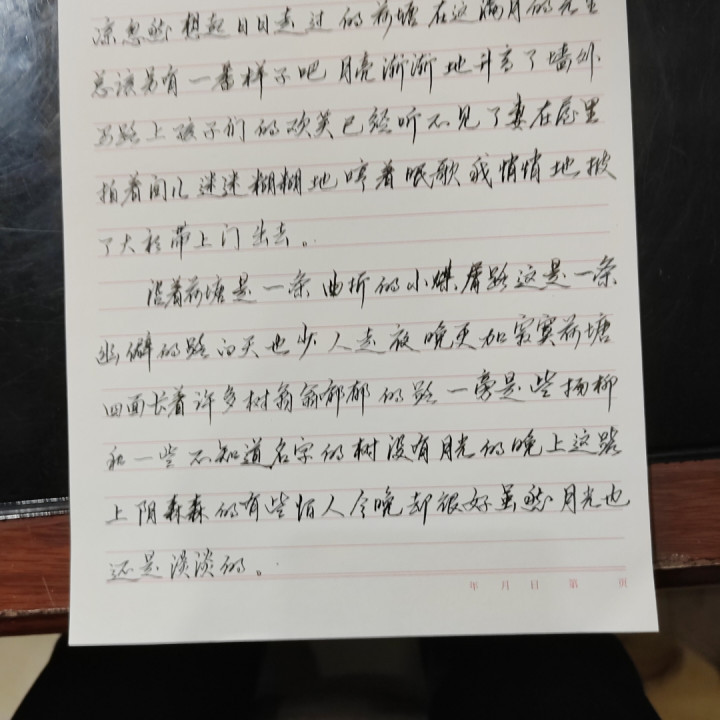 凉忽然想起日日走过的荷塘在这满月的光里
总该另有一番样子吧月亮渐渐地升高了墙外
马路上孩子们的欢笑已经听不见了妻在屋里
拍着闰儿迷迷糊糊地哼着眠歌我悄悄地披
了大衫带上门出去。
沿着荷塘是一条曲折的小煤屑路这是一条
幽僻的路白天也少人走夜晚更加寂寞荷塘
四面长着许多树蓊蓊郁郁的路一旁是些杨柳
和一些不知道名字的树没有月光的晚上这路
上阴森森的有些怕人今晚却很好虽然月光也
还是淡淡的。
年 月 日 第 页